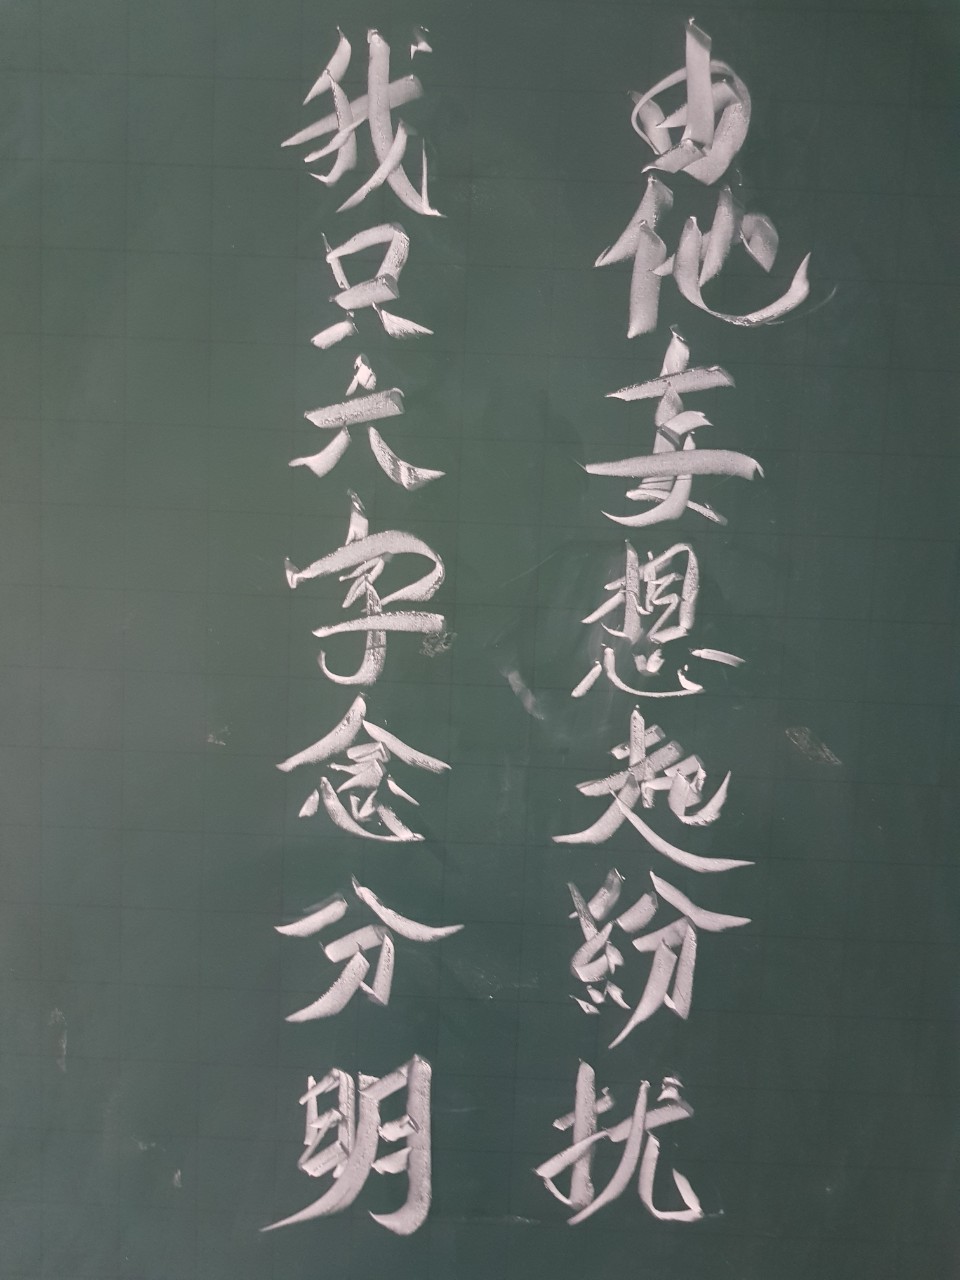 由他妄想起紛扰
我只六字念分明